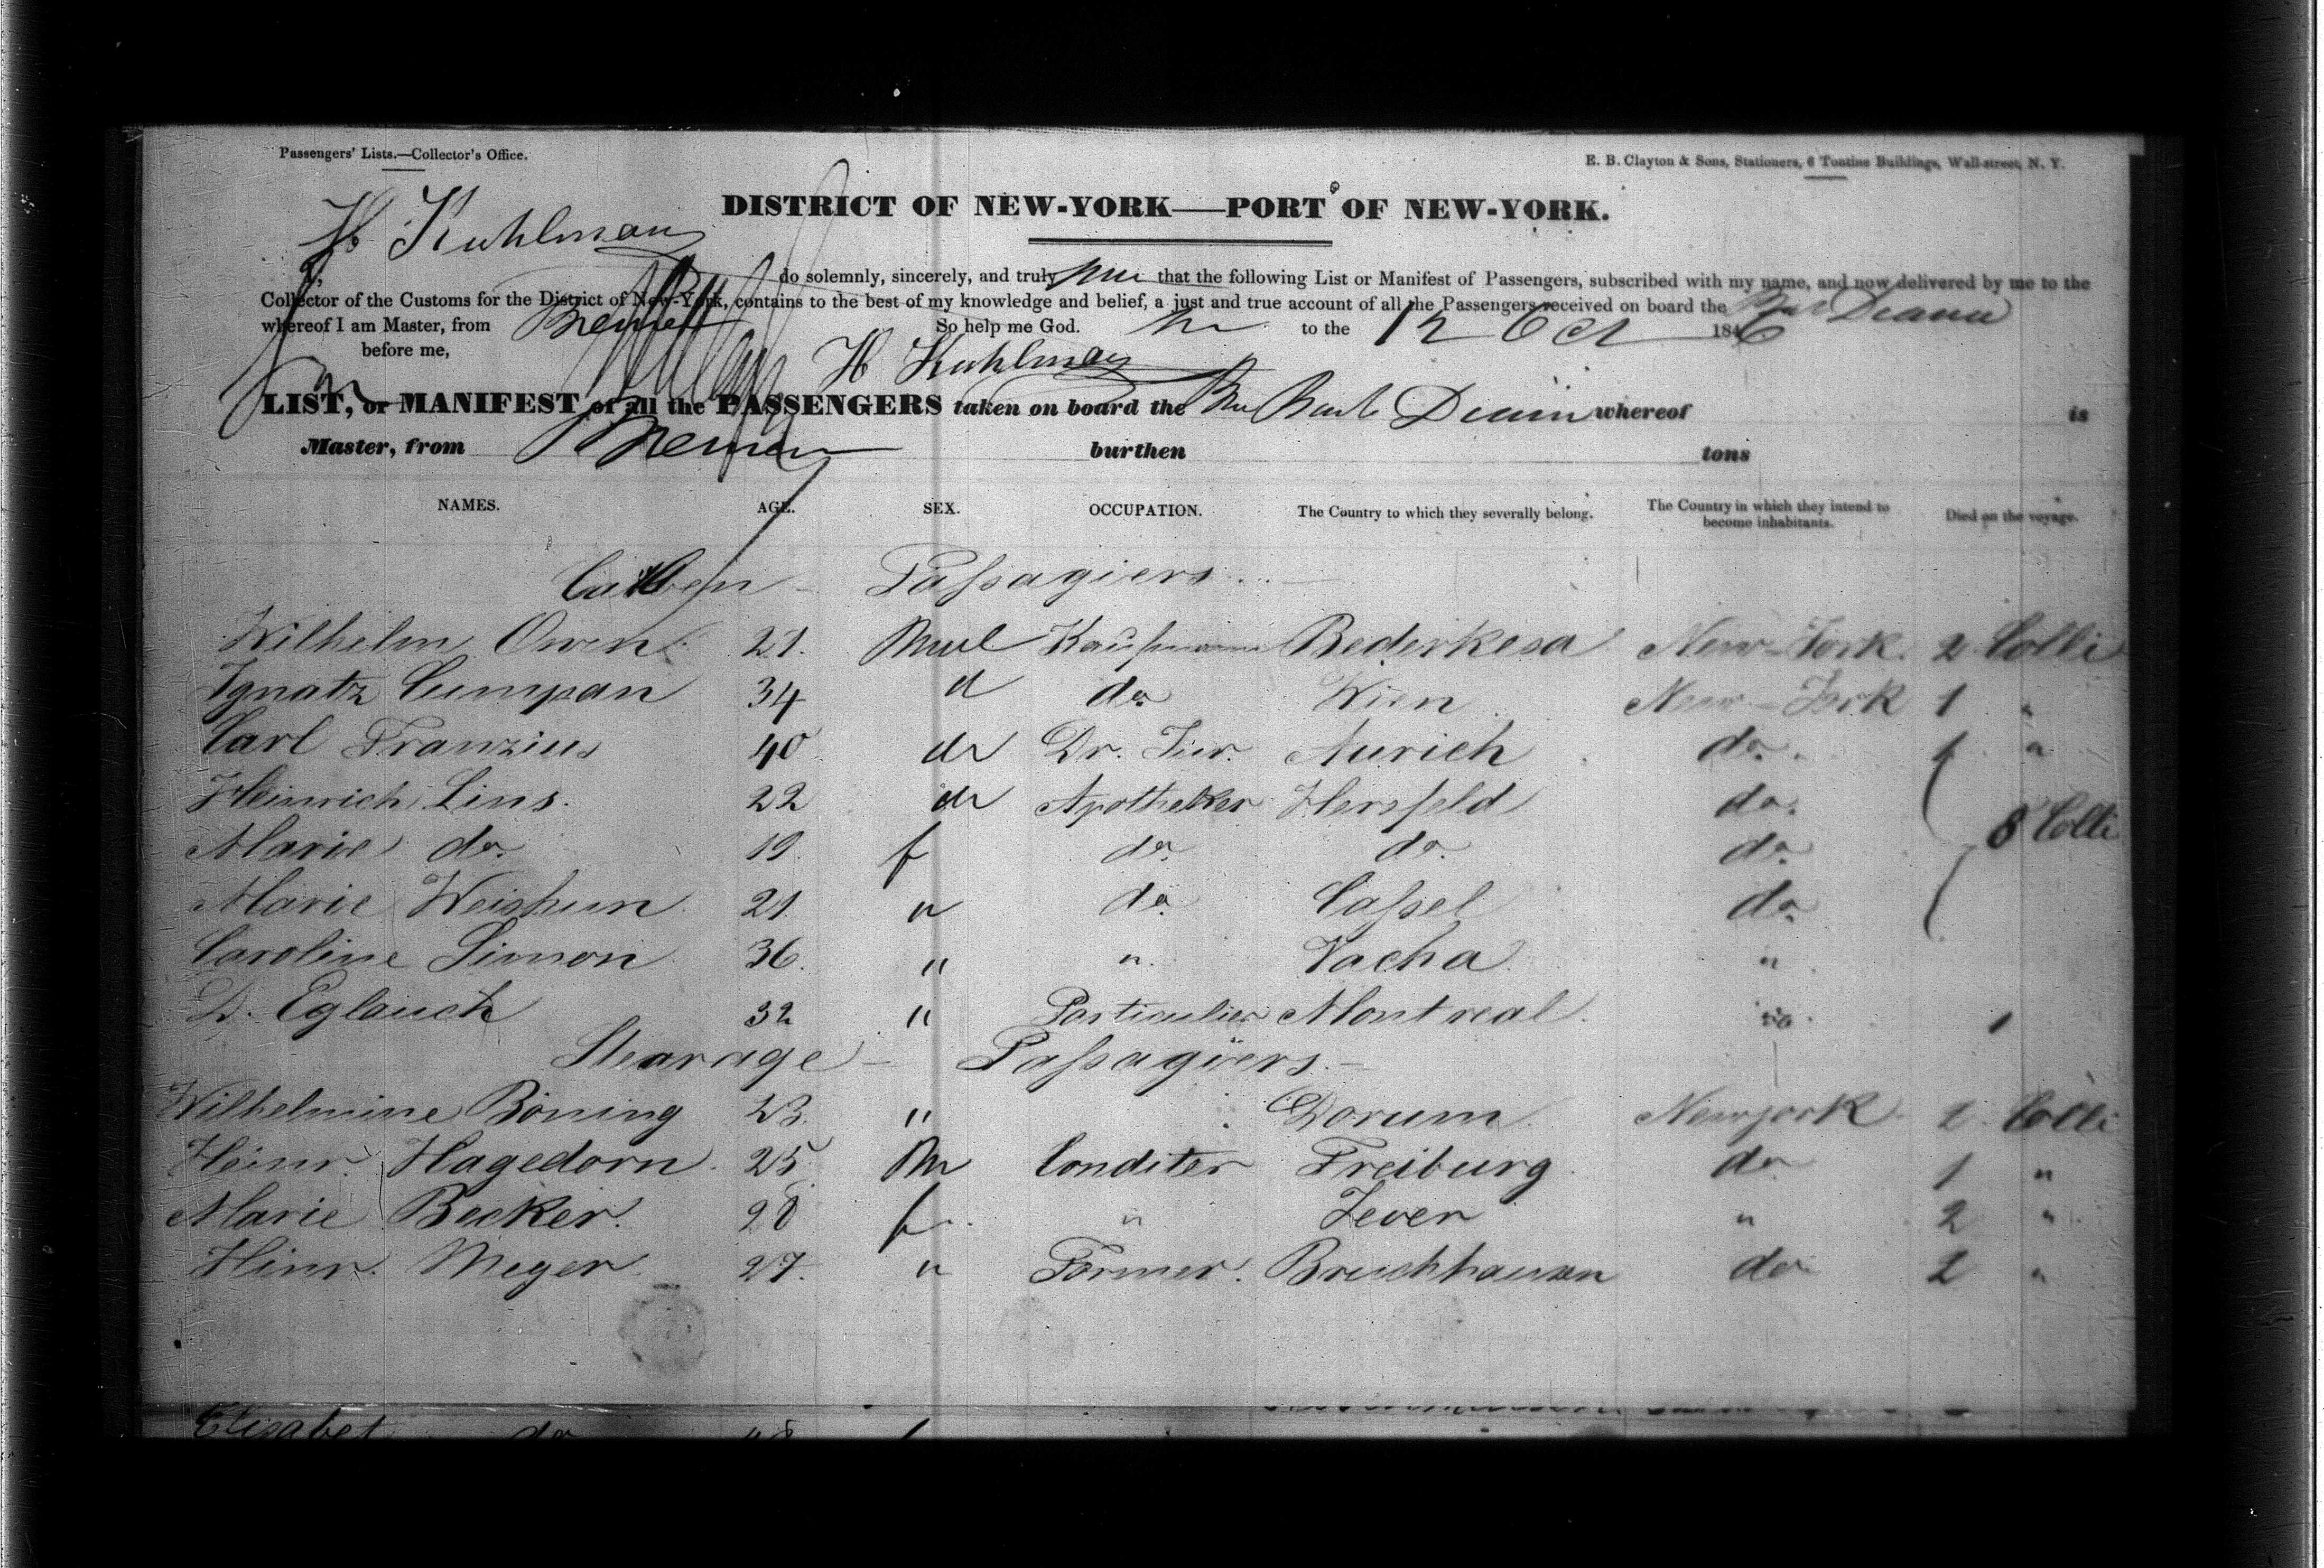 Passengers' Lists.—Collector's Office.
E. B. Clayton & Sons, Stationers, 6 Tontine Buildings, Wall-street, N. Y.
DISTRICT OF NEW-YORK—PORT OF NEW-YORK.
H Kuhlman
do solemnly, sincerely, and truly that the following List or Manifest of Passengers, subscribed with my name, and now delivered by me to the
Collector of the Customs for the District of New-York, contains to the best of my knowledge and belief, a just and true account of all the Passengers received on board the
whereof I am Master, from Bremen So help me God. to the 12 Oct 1846
before me, H Kuhlman
LIST, or MANIFEST of all the PASSENGERS taken on board the Bark whereof is
Master, from Bremen burthen tons
NAMES. AGE. SEX. OCCUPATION. The Country to which they severally belong. The Country in which they intend to become inhabitants. Died on the voyage.
Passagiers
Wilhelm Owen 21. Kaufmann Bederkesa New-York. 2 Colli
Ignatz Cumpan 34 do Wien New-York 1 "
Carl Franzius 40 Dr. Jur. Aurich do. 1 "
Heinrich Lins. 22 Apotheker Hersfeld do.
Marie do. 19. f do. do. do. 8 Colli
Marie 21. " do. Cassel do
Caroline Simon 36. " ". Vacha "
D. Eglauch 32 " Particulier Montreal. 1
Stearage — Passagiers. —
Wilhelmine Böning 23. " Dorum Newyork 2 Colli
Heinr. Hagedorn. 25. M Conditer Freiburg do 1 "
Marie Becker. 28 f. " Jever " 2 "
Hinr. Meyer 27. " Farmer. Bruchhausen do 2 "
Elisabet do f